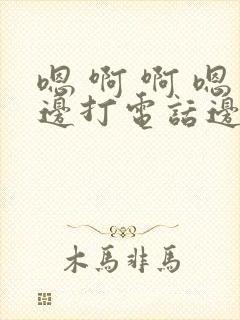 嗯啊啊嗯
邊打電話邊
木馬非馬